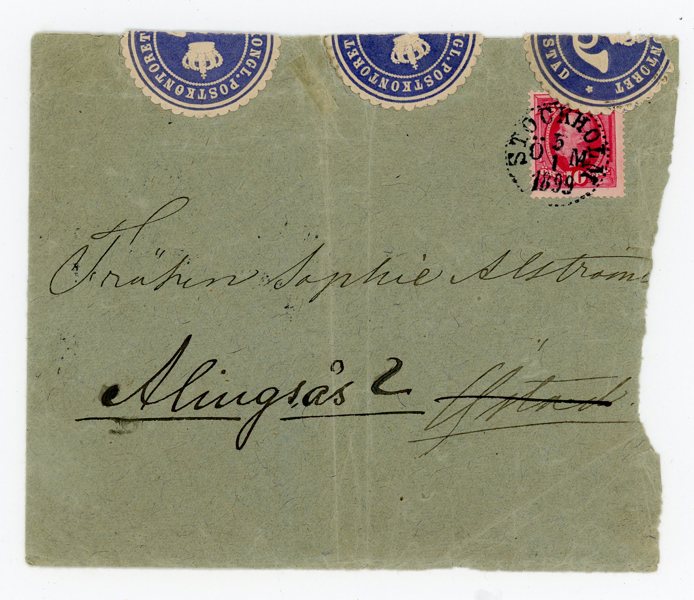 KONGL. POSTKONTORET
KONGL. POSTKONTORET
STAD * KONTORET
STOCKHOLM
5
Ö M
1
1899
10
Fröken Sophie Alström
Alingsås 2 Ystad